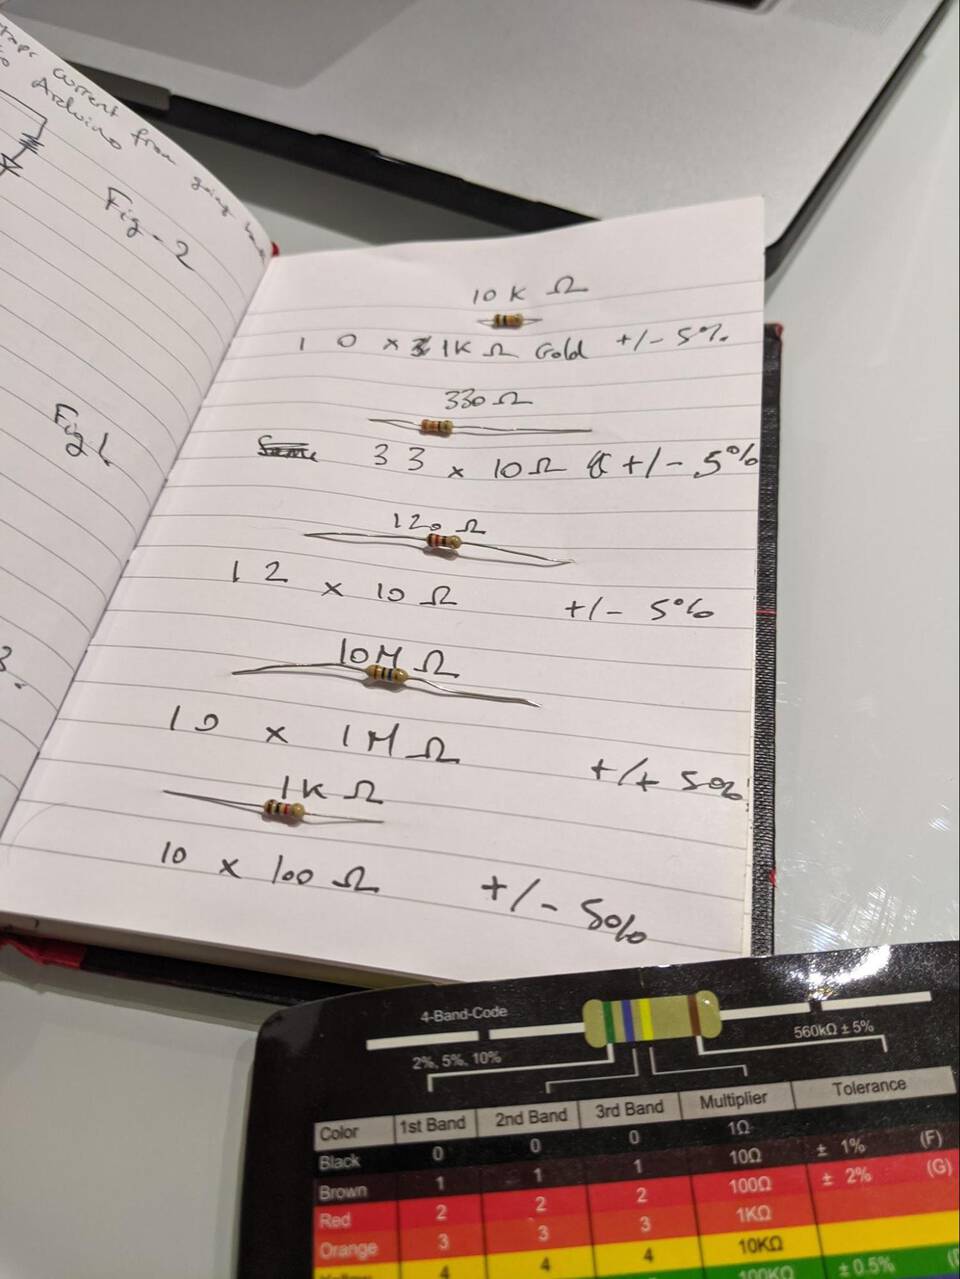 current from going
to Arduino
Fig-2
Fig 1
3.
10K Ω
1 0 x 1KΩ Gold +/- 5%
330Ω
Same 33 x 10Ω +/- 5%
120Ω
12 x 10Ω +/- 5%
10MΩ
10 x 1MΩ +/+ 5%
1KΩ
10 x 100Ω +/- 5%
4-Band-Code
2%, 5%, 10%
560kΩ ± 5%
Color 1st Band 2nd Band 3rd Band Multiplier Tolerance
Black 0 0 0 1Ω
Brown 1 1 1 10Ω ± 1% (F)
Red 2 2 2 100Ω ± 2% (G)
Orange 3 3 3 1KΩ
Yellow 4 4 4 10KΩ
100KΩ ± 0.5%